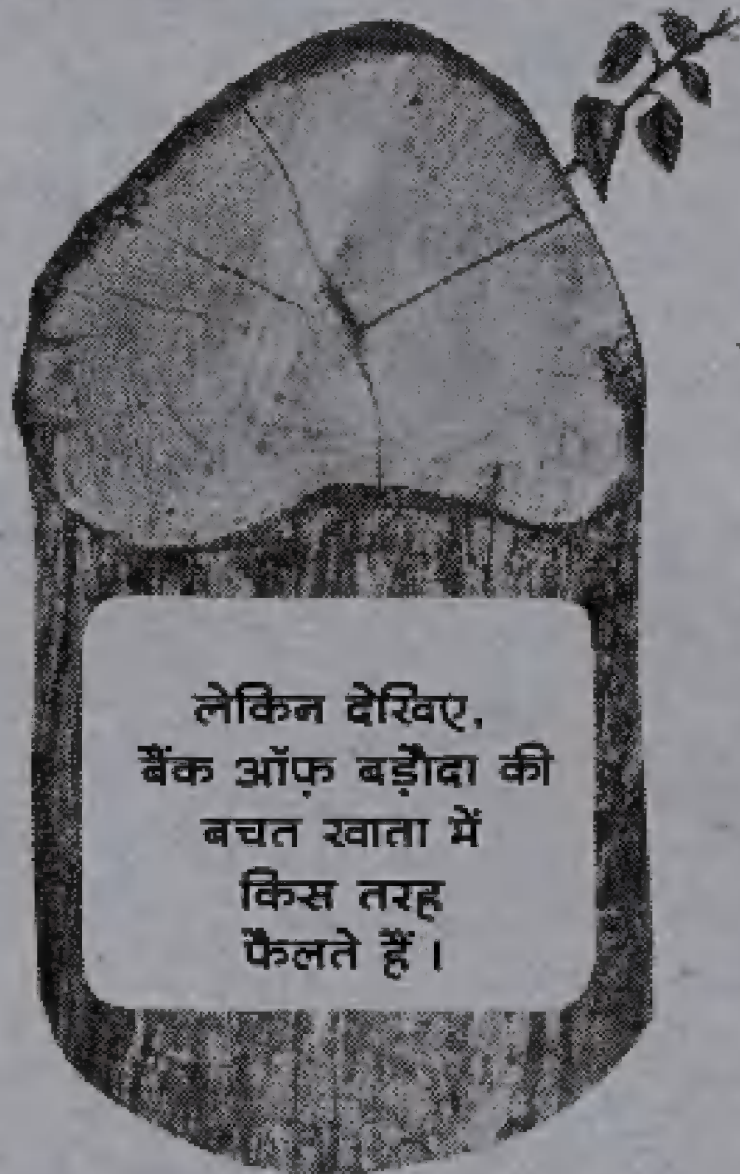 लेकिन देखिए,
बैंक ऑफ़ बड़ौदा की
बचत खाता में
किस तरह
फैलते हैं।